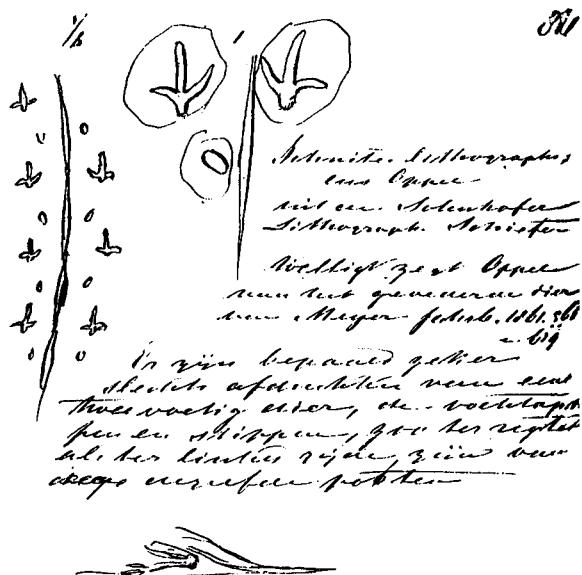 1/2
1
Ichnites lithographi,
cus Oppel
uit den Solenhofer
Lithograph. Schiefer
Welligt zegt Oppel
van het gevederde dier
van Meyer Jahrb. 1861. 561
Er zijn bepaald zeker
slechts afdrukken van een
tweevoetig dier, de voetstap
pen en stippen, zoo ter regter
als ter linker zijde, zijn van
dezelfde pooten